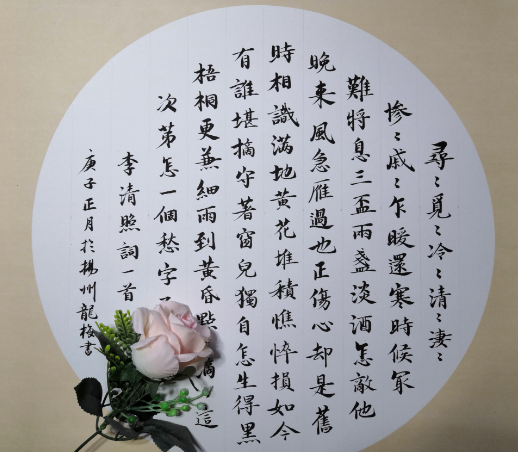 尋〻覓〻冷〻清〻淒〻
惨〻戚〻乍暖還寒時候冣
難將息三盃兩盞淡酒怎敵他
晚来風急雁過也正傷心却是舊
時相識满地黄花堆積憔悴損如今
有誰堪摘守著窗兒獨自怎生得黑
梧桐更兼細雨到黄昏點滴〻這
次第怎一個愁字
李清照詞一首
庚子正月於揚州龍梅書